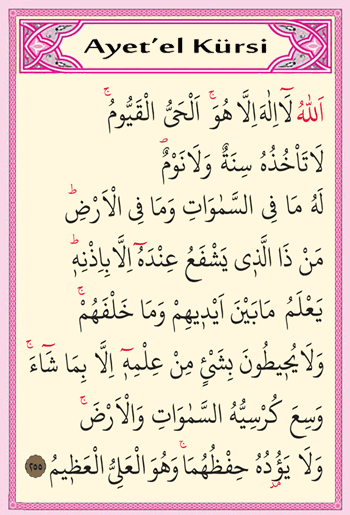 Ayet'el Kürsi
اَللّٰهُ لَٓا اِلٰهَ اِلَّا هُوَۚ اَلْحَيُّ الْقَيُّومُۚ
لَا تَأْخُذُهُ سِنَةٌ وَلَا نَوْمٌۜ
لَهُ مَا فِي السَّمٰوَاتِ وَمَا فِي الْاَرْضِۜ
مَنْ ذَا الَّذ۪ي يَشْفَعُ عِنْدَهُٓ اِلَّا بِاِذْنِه۪ۜ
يَعْلَمُ مَا بَيْنَ اَيْد۪يهِمْ وَمَا خَلْفَهُمْۚ
وَلَا يُح۪يطُونَ بِشَيْءٍ مِنْ عِلْمِه۪ٓ اِلَّا بِمَا شَٓاءَۚ
وَسِعَ كُرْسِيُّهُ السَّمٰوَاتِ وَالْاَرْضَۚ
وَلَا يَؤُ۫دُهُ حِفْظُهُمَاۚ وَهُوَ الْعَلِيُّ الْعَظ۪يمُ ٢٥٥